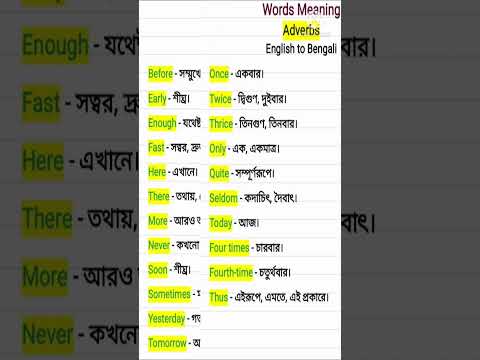 Words Meaning
Adverbs
English to Bengali
Before - সম্মুখে
Early - শীঘ্র।
Enough - যথেষ্ট
Fast - সত্বর, দ্রুত
Here - এখানে।
There - তথায়,
More - আরও
Never - কখনো
Soon - শীঘ্র।
Sometimes -
Yesterday - গত
Tomorrow -
Once - একবার।
Twice - দ্বিগুণ, দুইবার।
Thrice - তিনগুণ, তিনবার।
Only - এক, একমাত্র।
Quite - সম্পূর্ণরূপে।
Seldom - কদাচিৎ, দৈবাৎ।
Today - আজ।
Four times - চারবার।
Fourth-time - চতুর্থবার।
Thus - এইরূপে, এমতে, এই প্রকারে।
Enough - যথে
Fast - সত্বর, দ্রু
Here - এখানে।
There - তথায়,
More - আরও
Never - কখনো